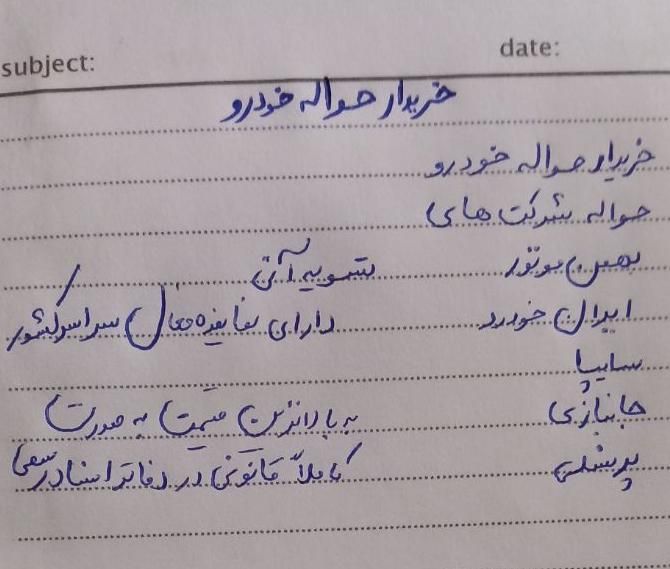 subject: date:
خریدار حواله خودرو
خریدار حواله خودرو
حواله شرکت های
بهمن موتور تسویه آنی
ایران خودرو دارای نماینده فعال سراسر کشور
سایپا
جانبازی به بالاترین قیمت به صورت
پرشین کاملاً قانونی در دفاتر اسناد رسمی